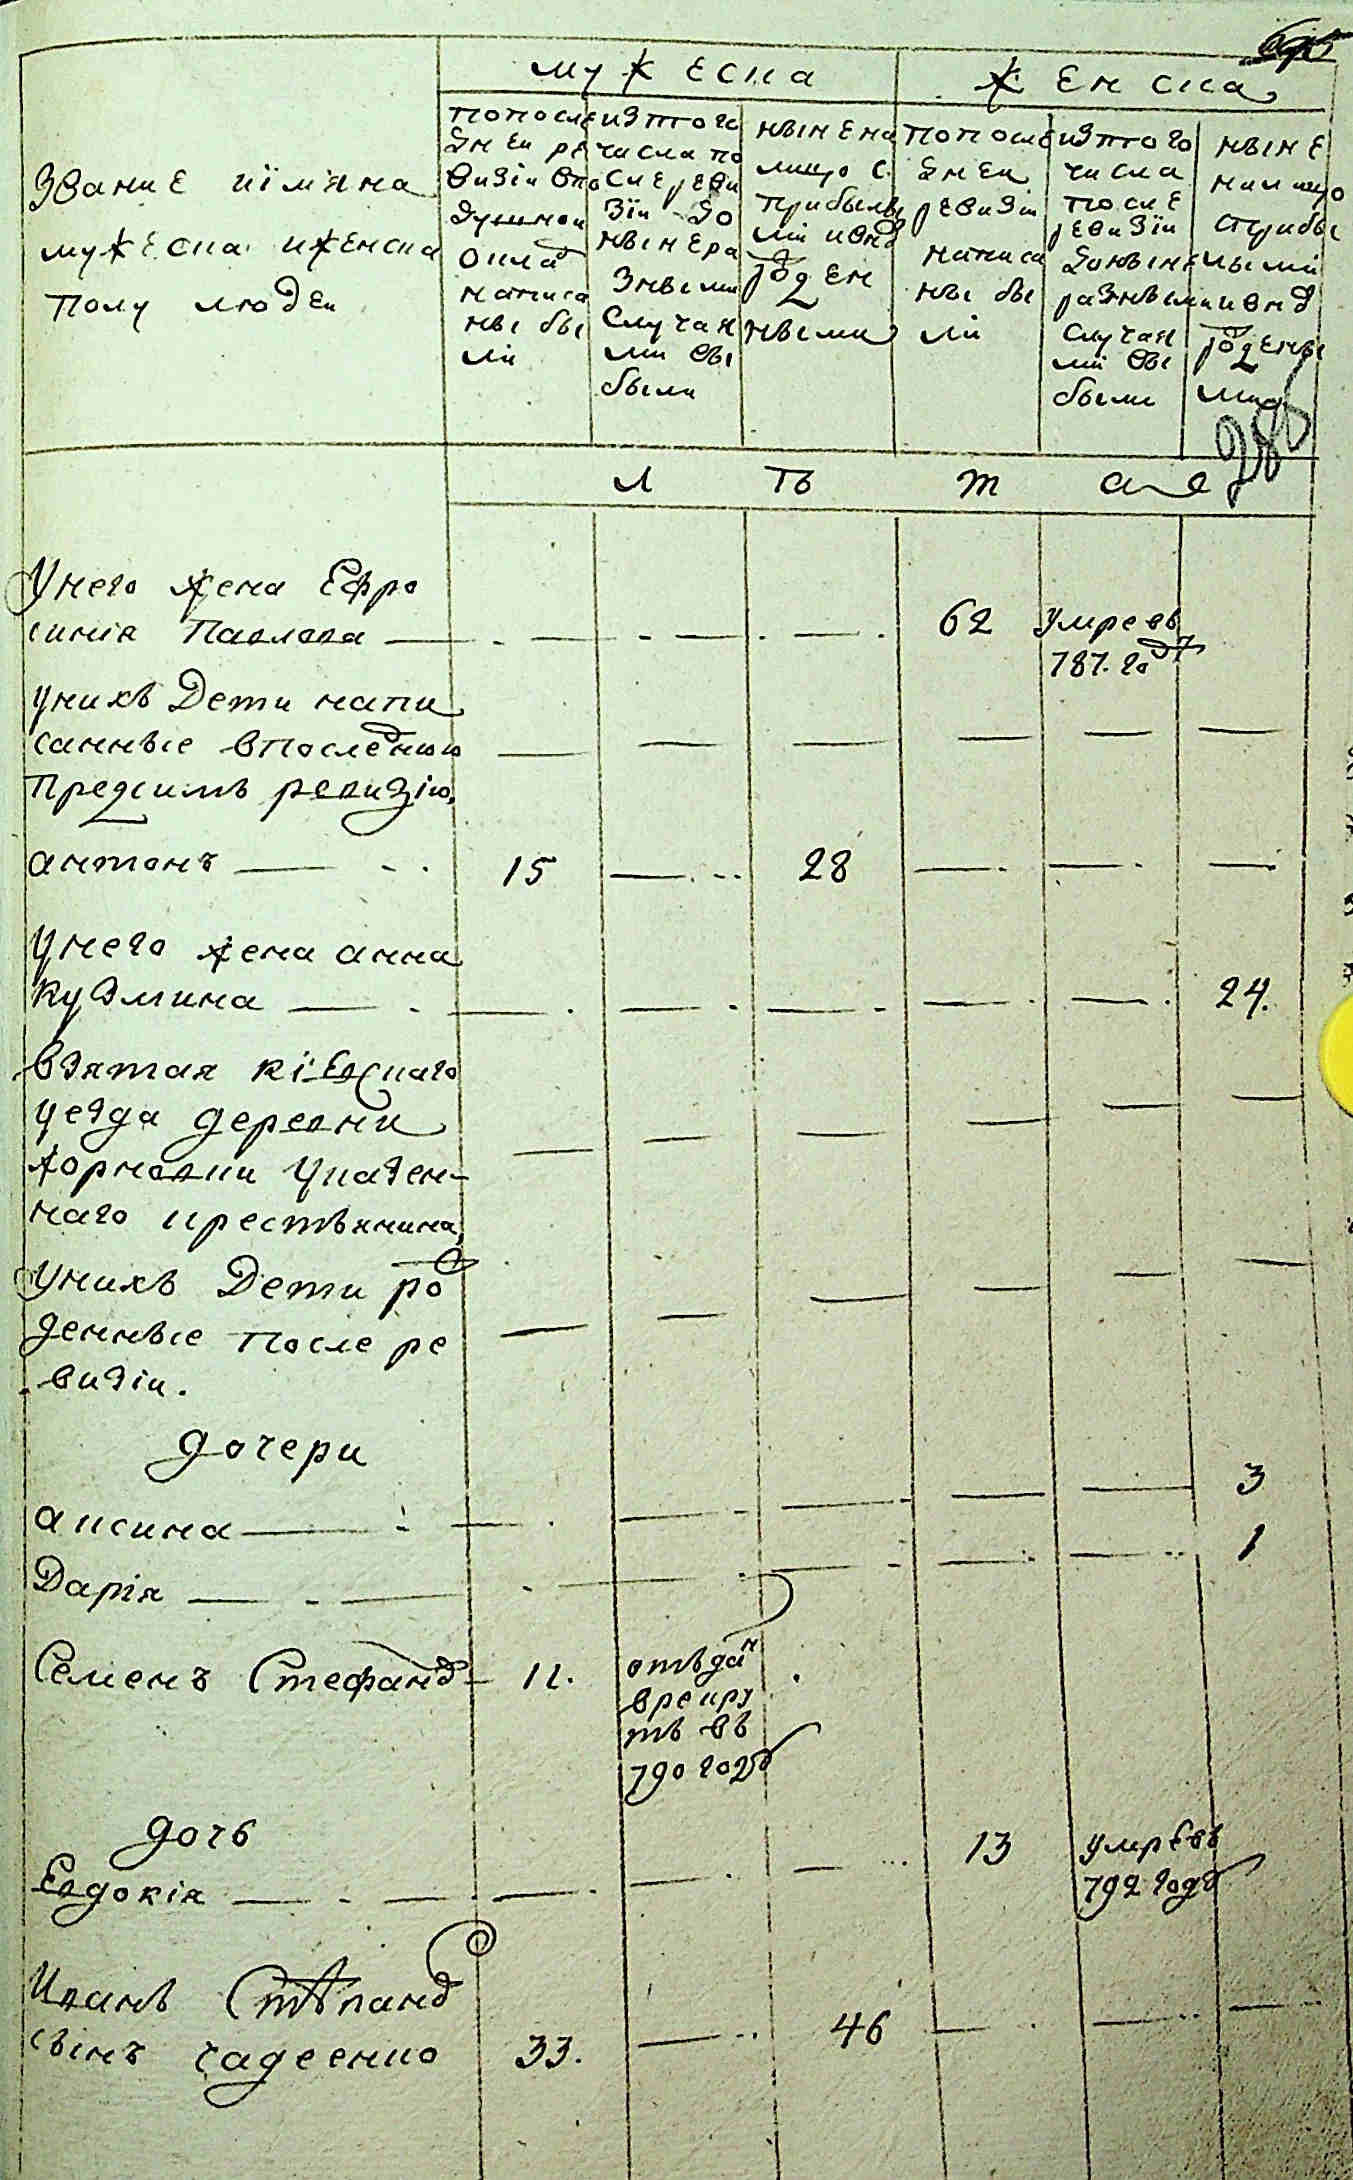 мужеска
женска
Звание иїмяна
мужеска иженска
полу людеи
попосле
днеи ре
визїи впо
душнои
оклад
написа
ны бы
ли
изтого
числа по
сле реви
зїи до
ныне ра
зными
случая
ми вы
были
ныне на
лицо с
прибылы
ми ивнов
рожден
ными
попосле
днеи
ревизїи
написа
ны бы
ли
изтого
числа
после
ревизїи
доныне
разными
случая
ми вы
были
ныне
налицо
сприбы
лыми
ивнов
рожденны
ми
28
лѣта
Унего жена Ефро
синїя Павлова
62
умре въ
787. год
унихъ Дети напи
санные впоследнюю
предсимъ ревизїю,
антонъ
15
28
унего жена анна
кузмина
24.
взятая кїевскаго
уезда деревни
жорновки указен-
наго крестьянина,
унихъ Дети рож
денные после ре
визїи.
дочери
аксина
3
Дарїя
1
Семенъ Стефанов
11.
отъдан
врекру
тъ въ
790 году
дочь
Евдокїя
13
умре въ
792 году
Иванъ Стѣпанов
сынъ гадеенко
33.
46